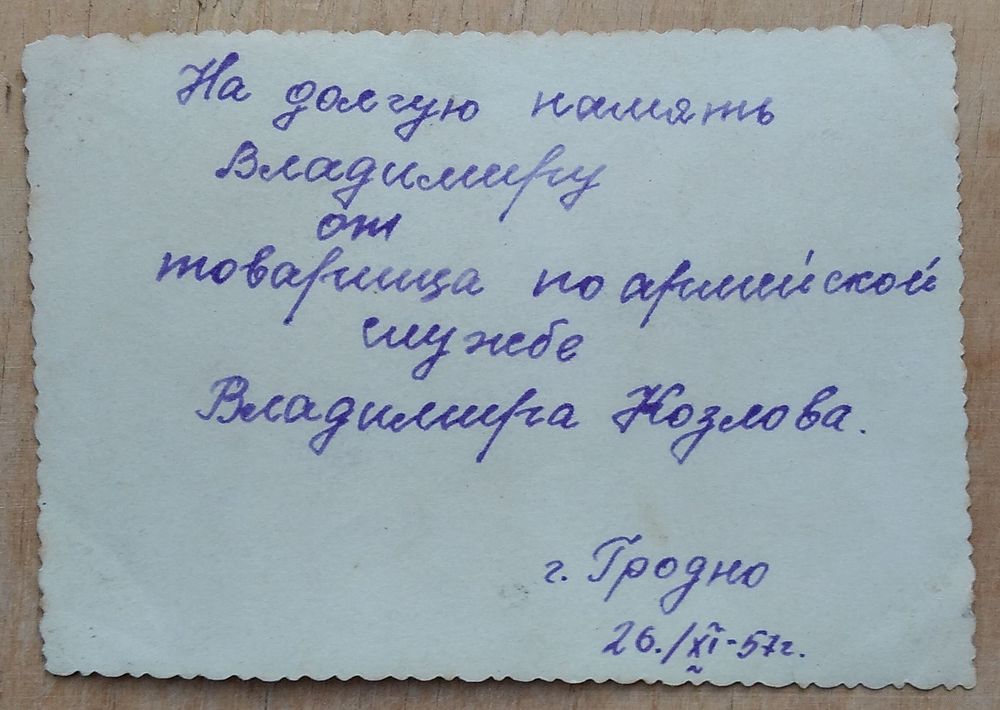 На долгую память
Владимиру
от
товарища по армейской
службе
Владимира Козлова.
г. Гродно
26./XI-57г.